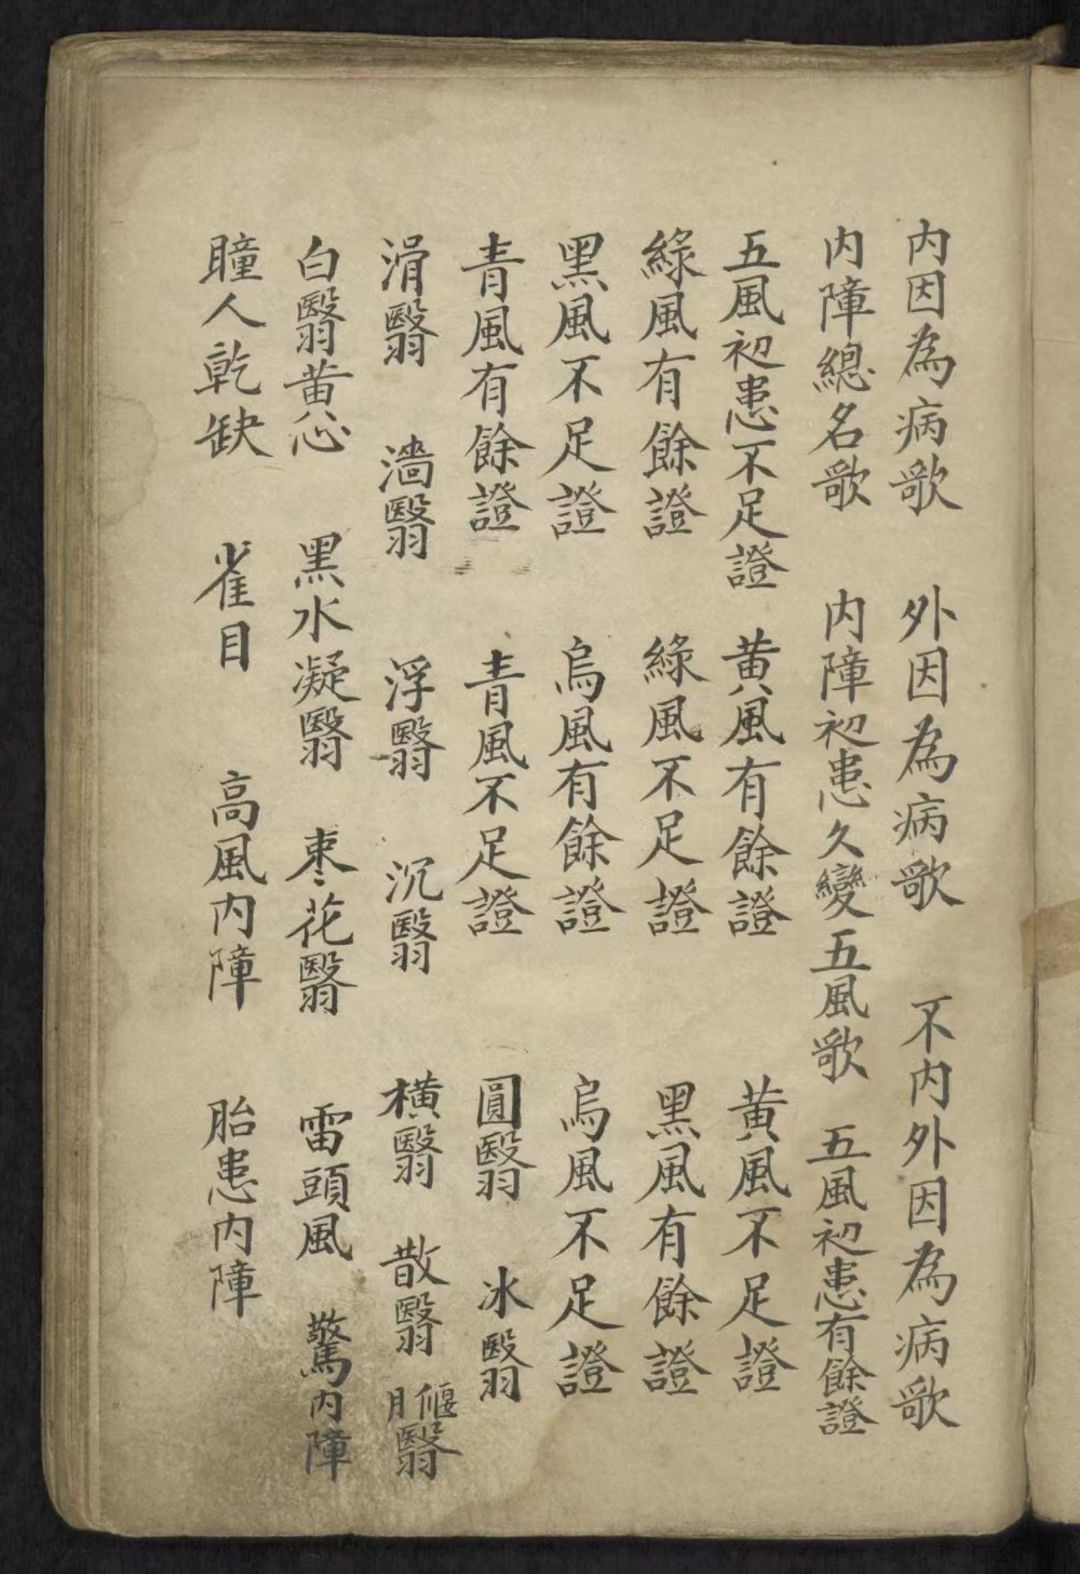 内因為病歌　外因為病歌　不内外因為病歌
内障總名歌　内障初患久變五風歌　五風初患有餘證
五風初患不足證　黄風有餘證　黄風不足證
綠風有餘證　綠風不足證　黑風有餘證
黑風不足證　烏風有餘證　烏風不足證
青風有餘證　青風不足證　圓翳　冰翳
滑翳　濇翳　浮翳　沉翳　横翳　散翳　偃月翳
白翳黄心　黑水凝翳　枣花翳　雷頭風　驚内障
瞳人乾缺　雀目　高風内障　胎患内障